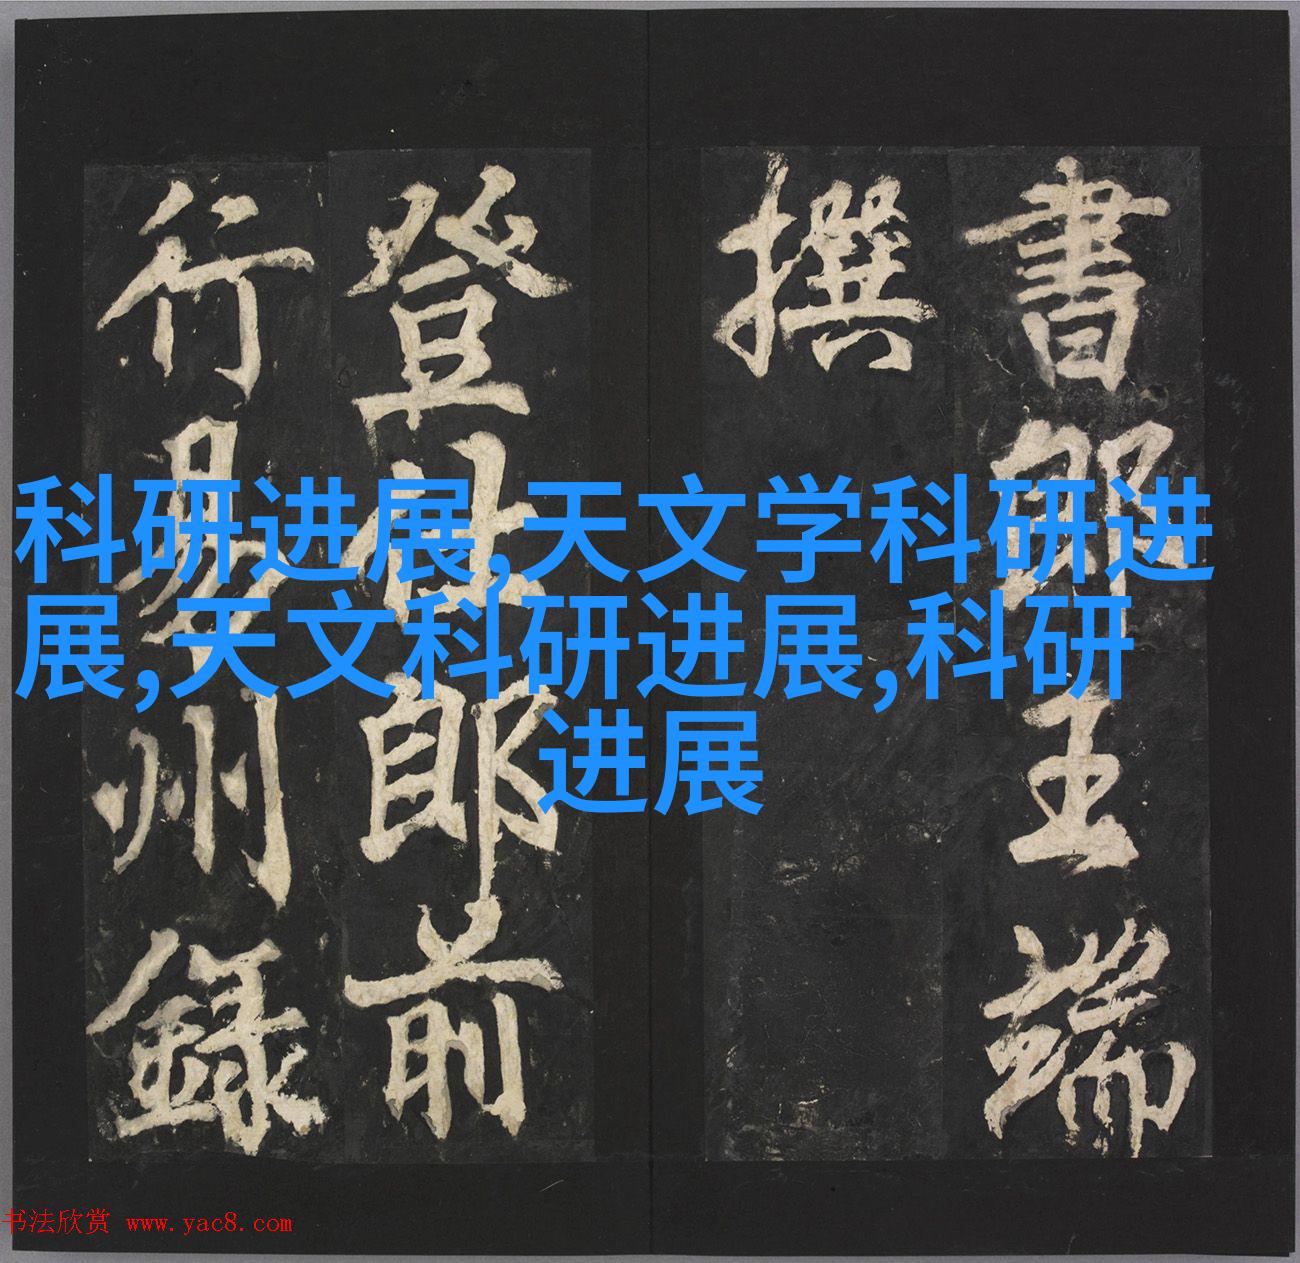 書郎王端
撰
登仕郎前
行易州録
科研进展,天文学科研进
展,天文科研进展,科研
进展
书法欣赏 www.yac8.com